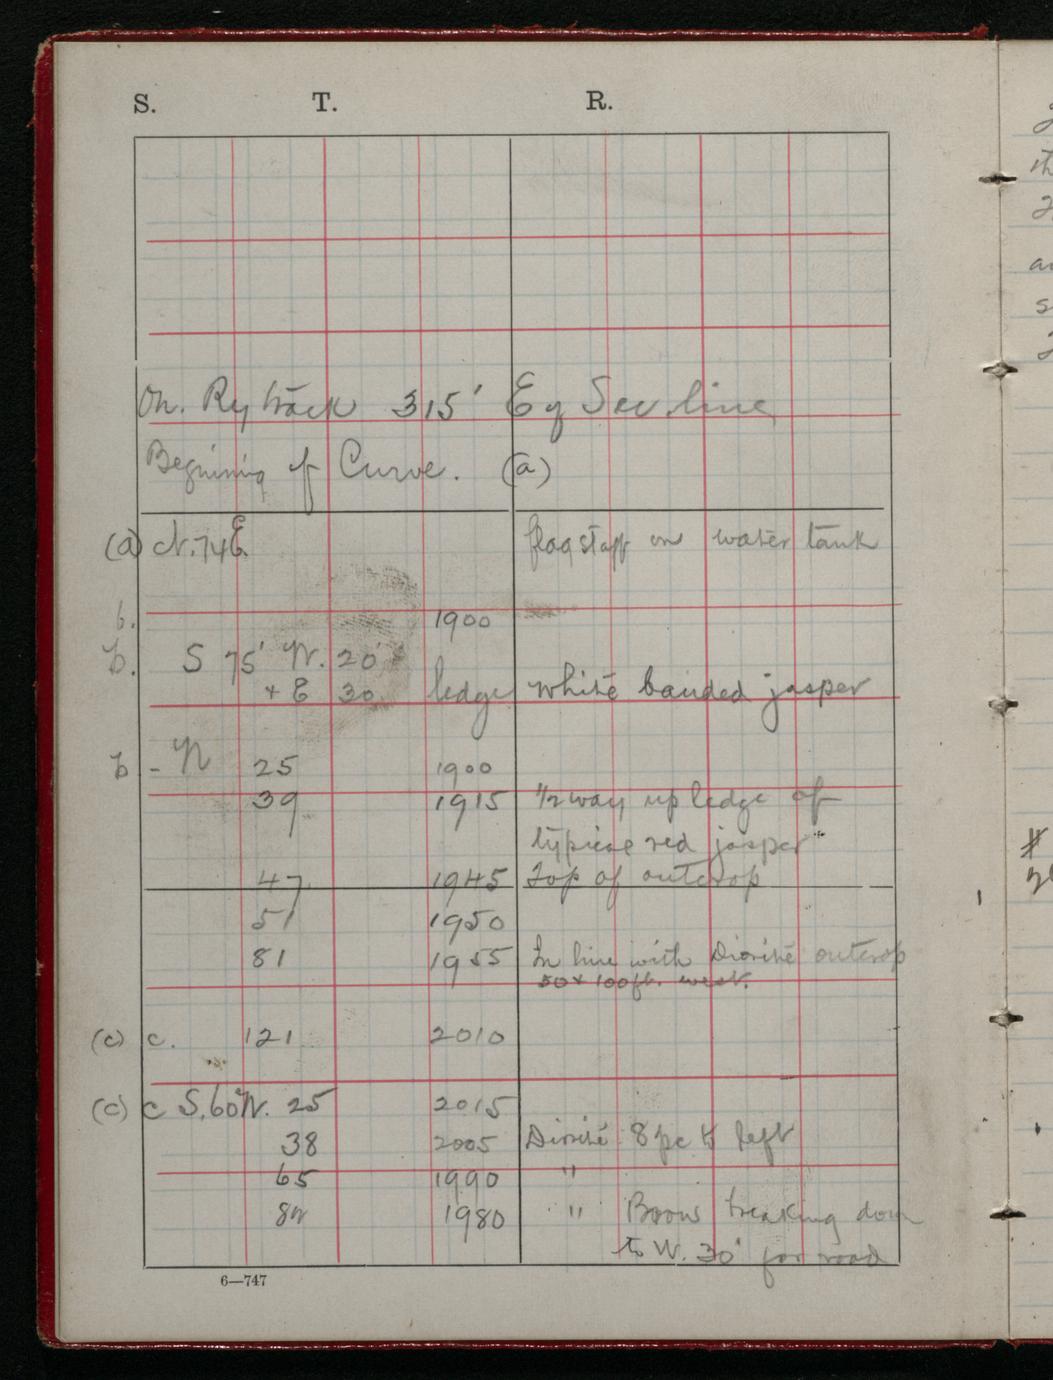 S. T. R.
On. Ry track 315' E of Sec line
Beginning of Curve. (a)
(a) N.74E. flagstaff on water tank
b. 1900
b. S 75' W. 20'
+ E 30 ledge white banded jasper
b - N 25 1900
39 1915 1/2 way up ledge of
typical red jasper
47 1945 Top of outcrop
51 1950
81 1955 In line with Diorite outcrop
50 x 100ft. west.
(c) c. 121 2010
(c) c S.60°W. 25 2015
38 2005 Diorite 8 pc to left
65 1990 "
82 1980 " breaking down
to W. 30' for road
6—747